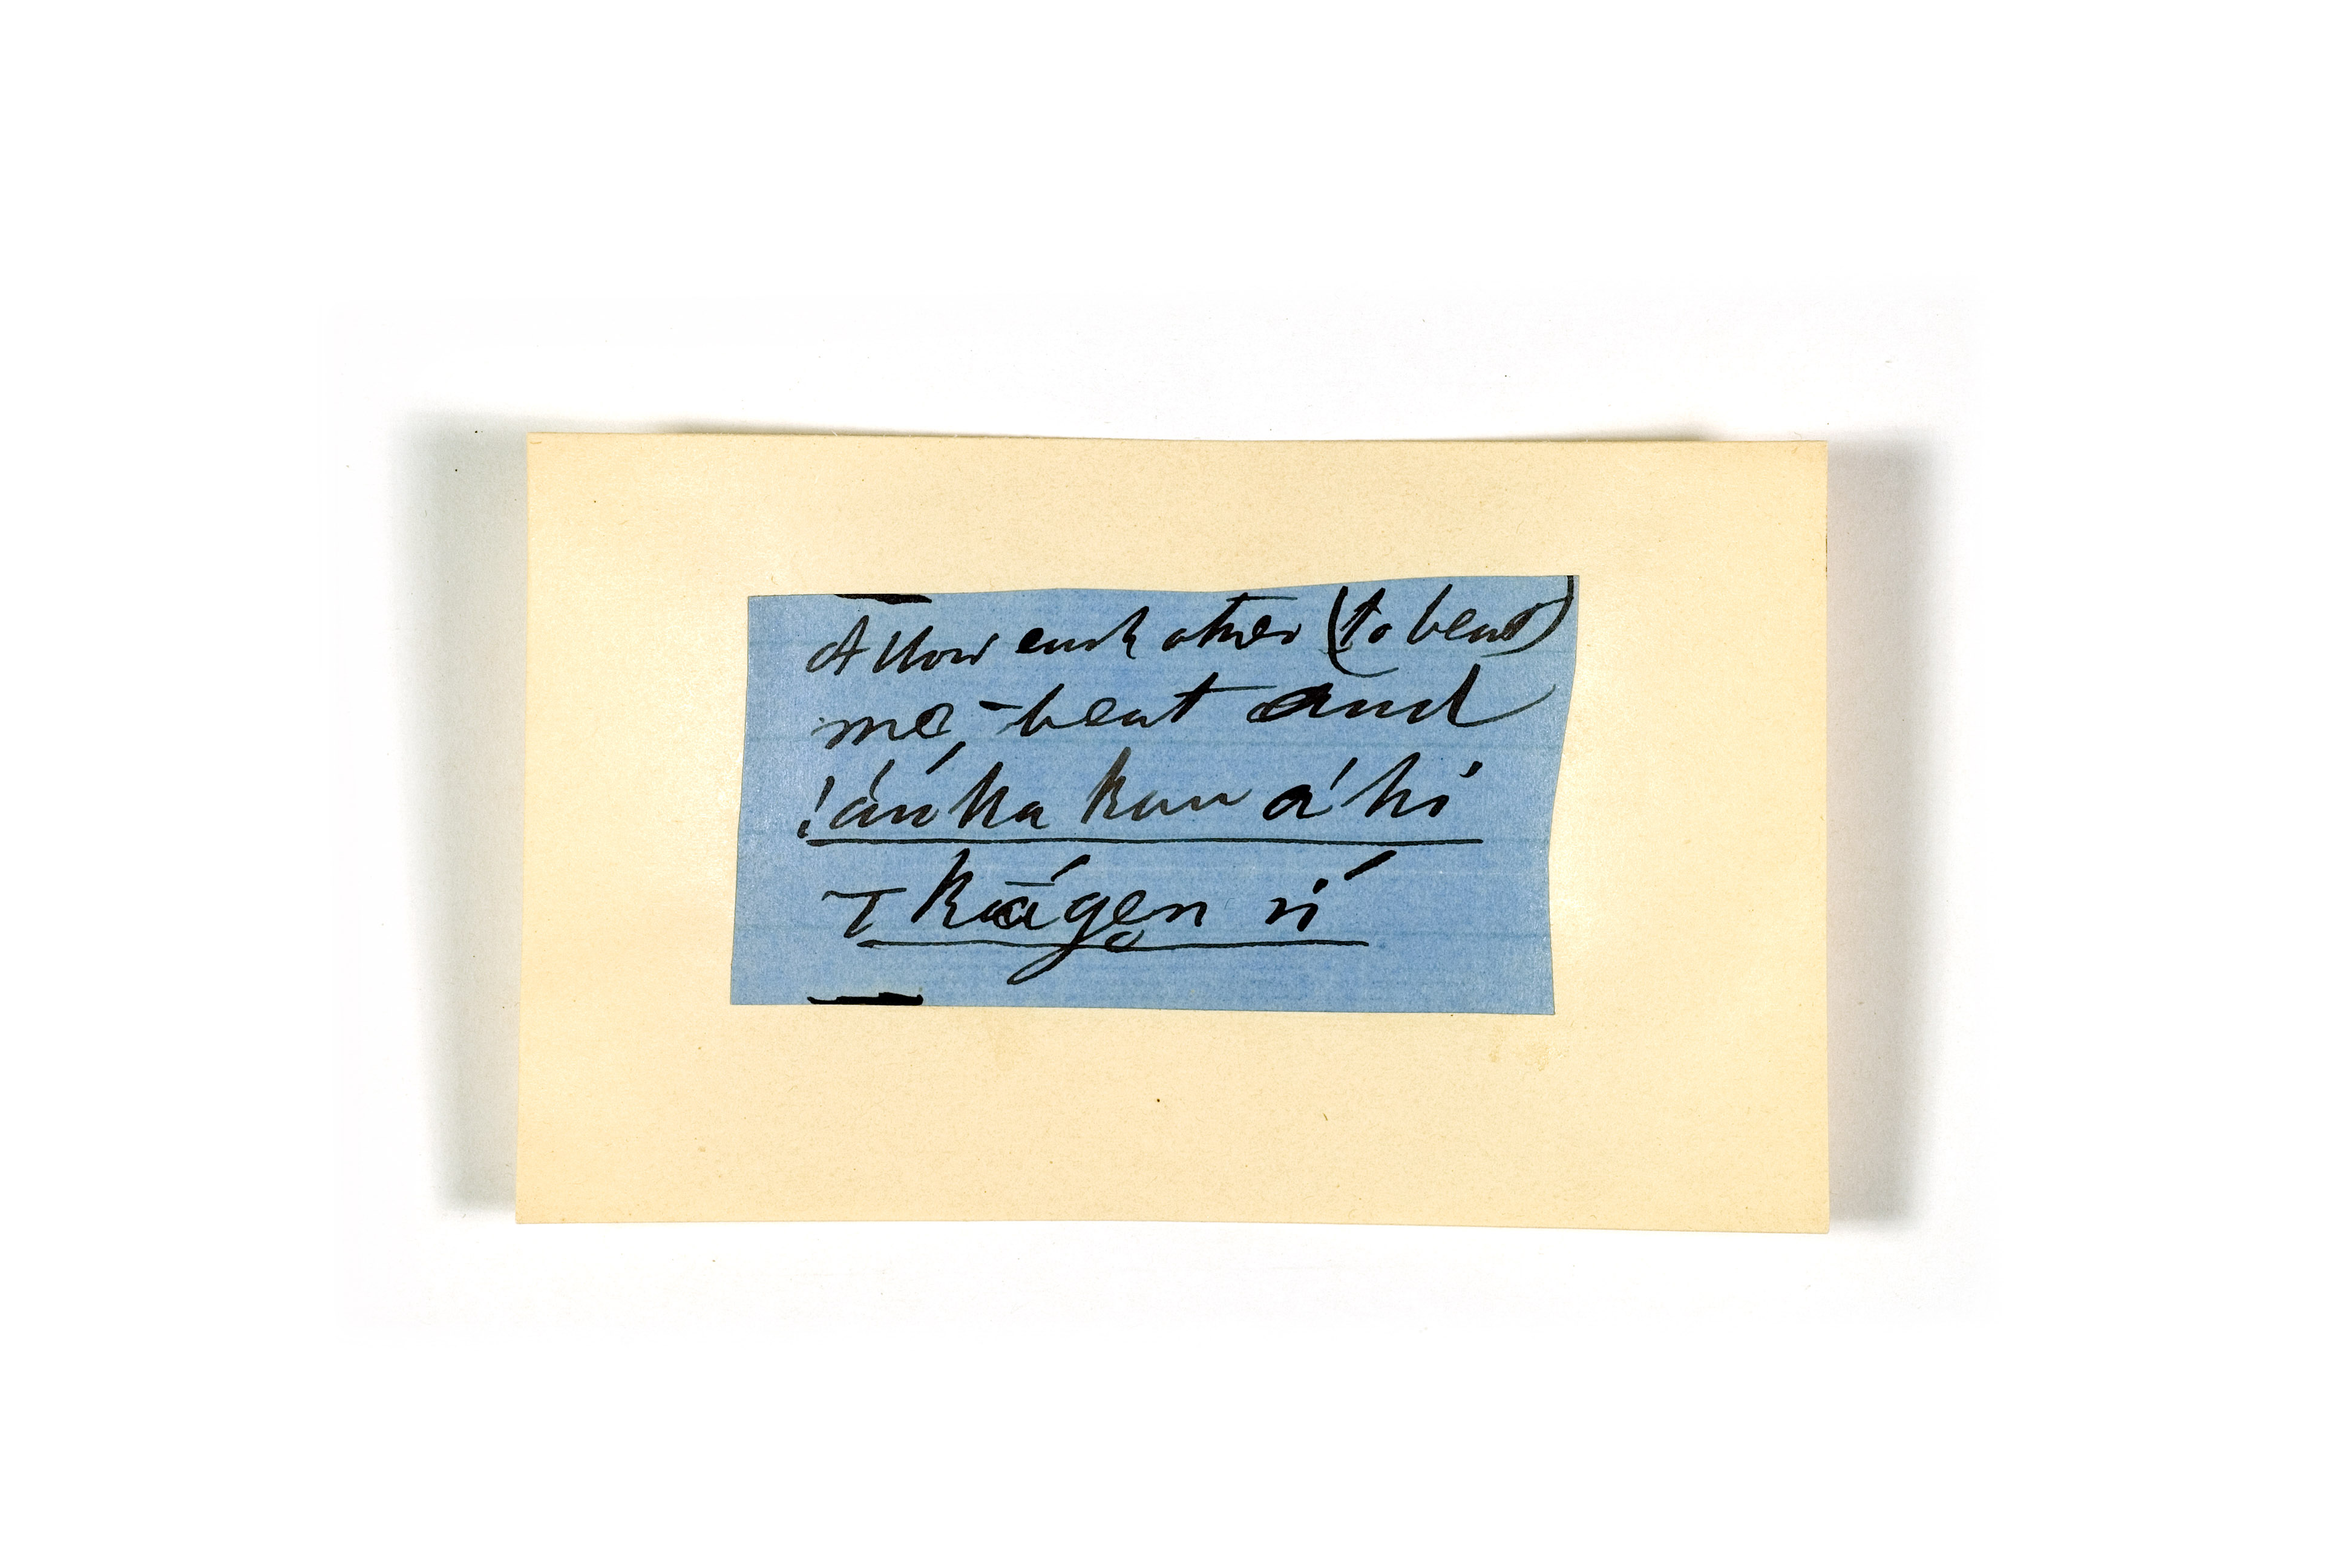 Allow each other (to beat)
me, - beat and
!áń ka kau á hi
T k̄āgen ń